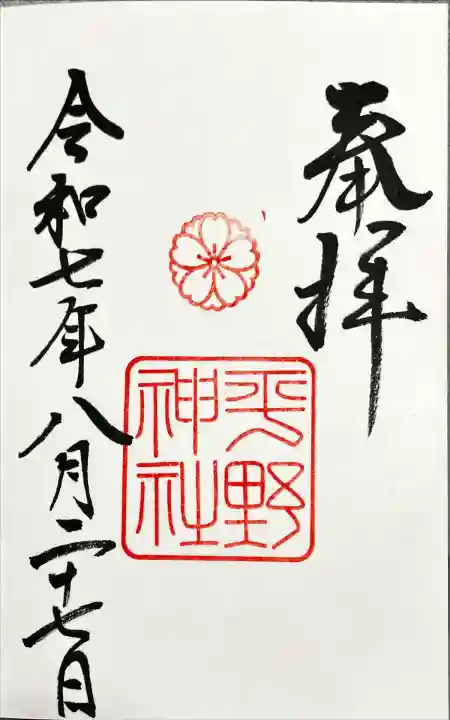 奉拝
平野
神社
令和七年八月二十七日